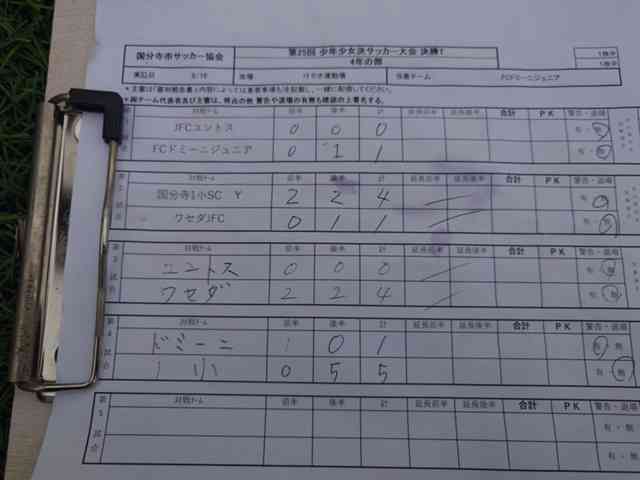 国分寺市サッカー協会 第25回 少年少女済サッカー大会 決勝T
4年の部
実施日 9/16 会場 けやき運動場 当番チーム FCドミーニジュニア
第1試合 対戦チーム 前半 後半 計 延長前半 延長後半 合計 PK 警告・退場
JFCユントス 0 0 0 有・無
FCドミーニジュニア 0 1 1 有・無
第2試合 対戦チーム 前半 後半 計 延長前半 延長後半 合計 PK 警告・退場
国分寺1小SC Y 2 2 4 有・無
ワセダJFC 0 1 1 有・無
第3試合 対戦チーム 前半 後半 計 延長前半 延長後半 合計 PK 警告・退場
ユントス 0 0 0 有・無
ワセダ 2 2 4 有・無
第4試合 対戦チーム 前半 後半 計 延長前半 延長後半 合計 PK 警告・退場
ドミーニ 1 0 1 有・無
1小 0 5 5 有・無
第5試合 対戦チーム 前半 後半 計 延長前半 延長後半 合計 PK 警告・退場
有・無
有・無